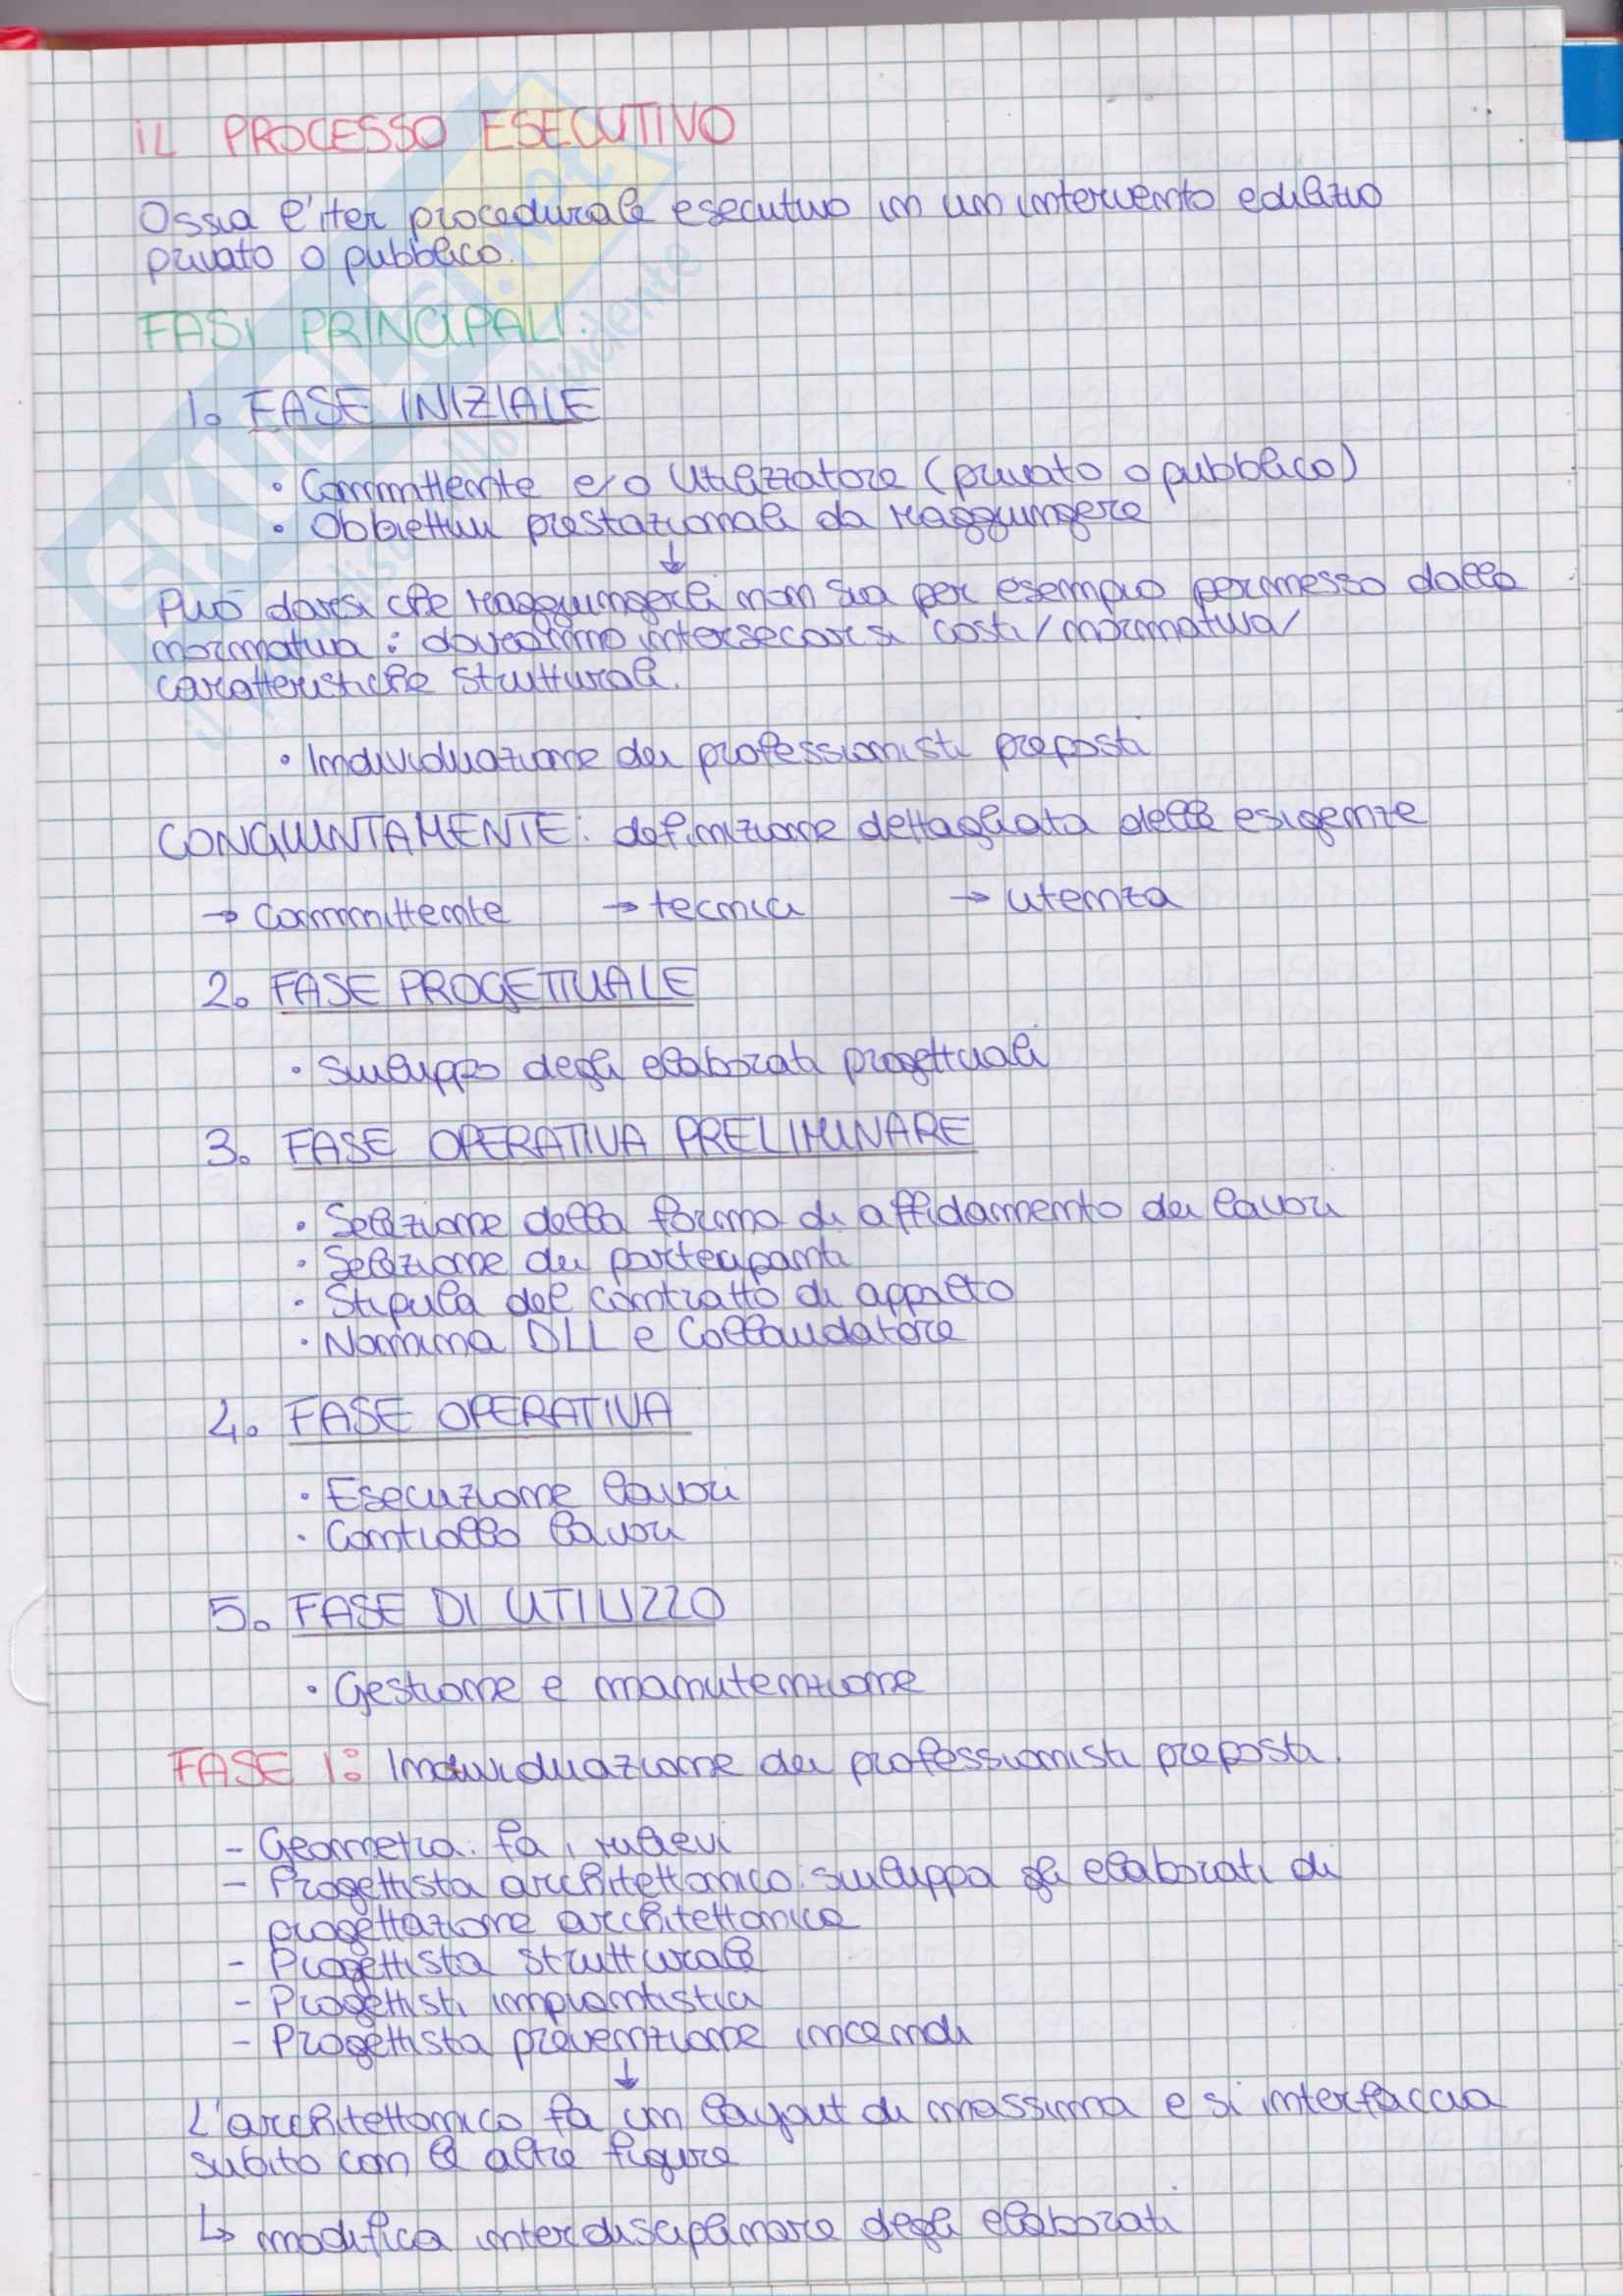 IL PROCESSO ESECUTIVO
Ossia l'iter procedurale esecutivo in un intervento edilizio
privato o pubblico.
FASI PRINCIPALI:
1. FASE INIZIALE
• Committente e/o Utilizzatore (privato o pubblico)
• Obbiettivi prestazionali da raggiungere
↓
Può darsi che raggiungerli non sia per esempio permesso dalla
normativa: dovranno intersecarsi costi/normativa/
caratteristiche strutturali.
• Individuazione dei professionisti preposti
CONGIUNTAMENTE: definizione dettagliata delle esigenze
→ committente → tecnici → utenza
2. FASE PROGETTUALE
• Sviluppo degli elaborati progettuali
3. FASE OPERATIVA PRELIMINARE
• Selezione della forma di affidamento dei lavori
• Selezione dei partecipanti
• Stipula del contratto di appalto
• Nomina DLL e Collaudatore
4. FASE OPERATIVA
• Esecuzione lavori
• Controllo lavori
5. FASE DI UTILIZZO
• Gestione e manutenzione
FASE 1: Individuazione dei professionisti preposti.
- Geometra: fa i rilievi
- Progettista architettonico: sviluppa gli elaborati di
progettazione architettonica
- Progettista strutturale
- Progettisti impiantistici
- Progettista prevenzione incendi
↓
L'architettonico fa un layout di massima e si interfaccia
subito con le altre figure
↳ modifica interdisciplinare degli elaborati
SKUOLA.net